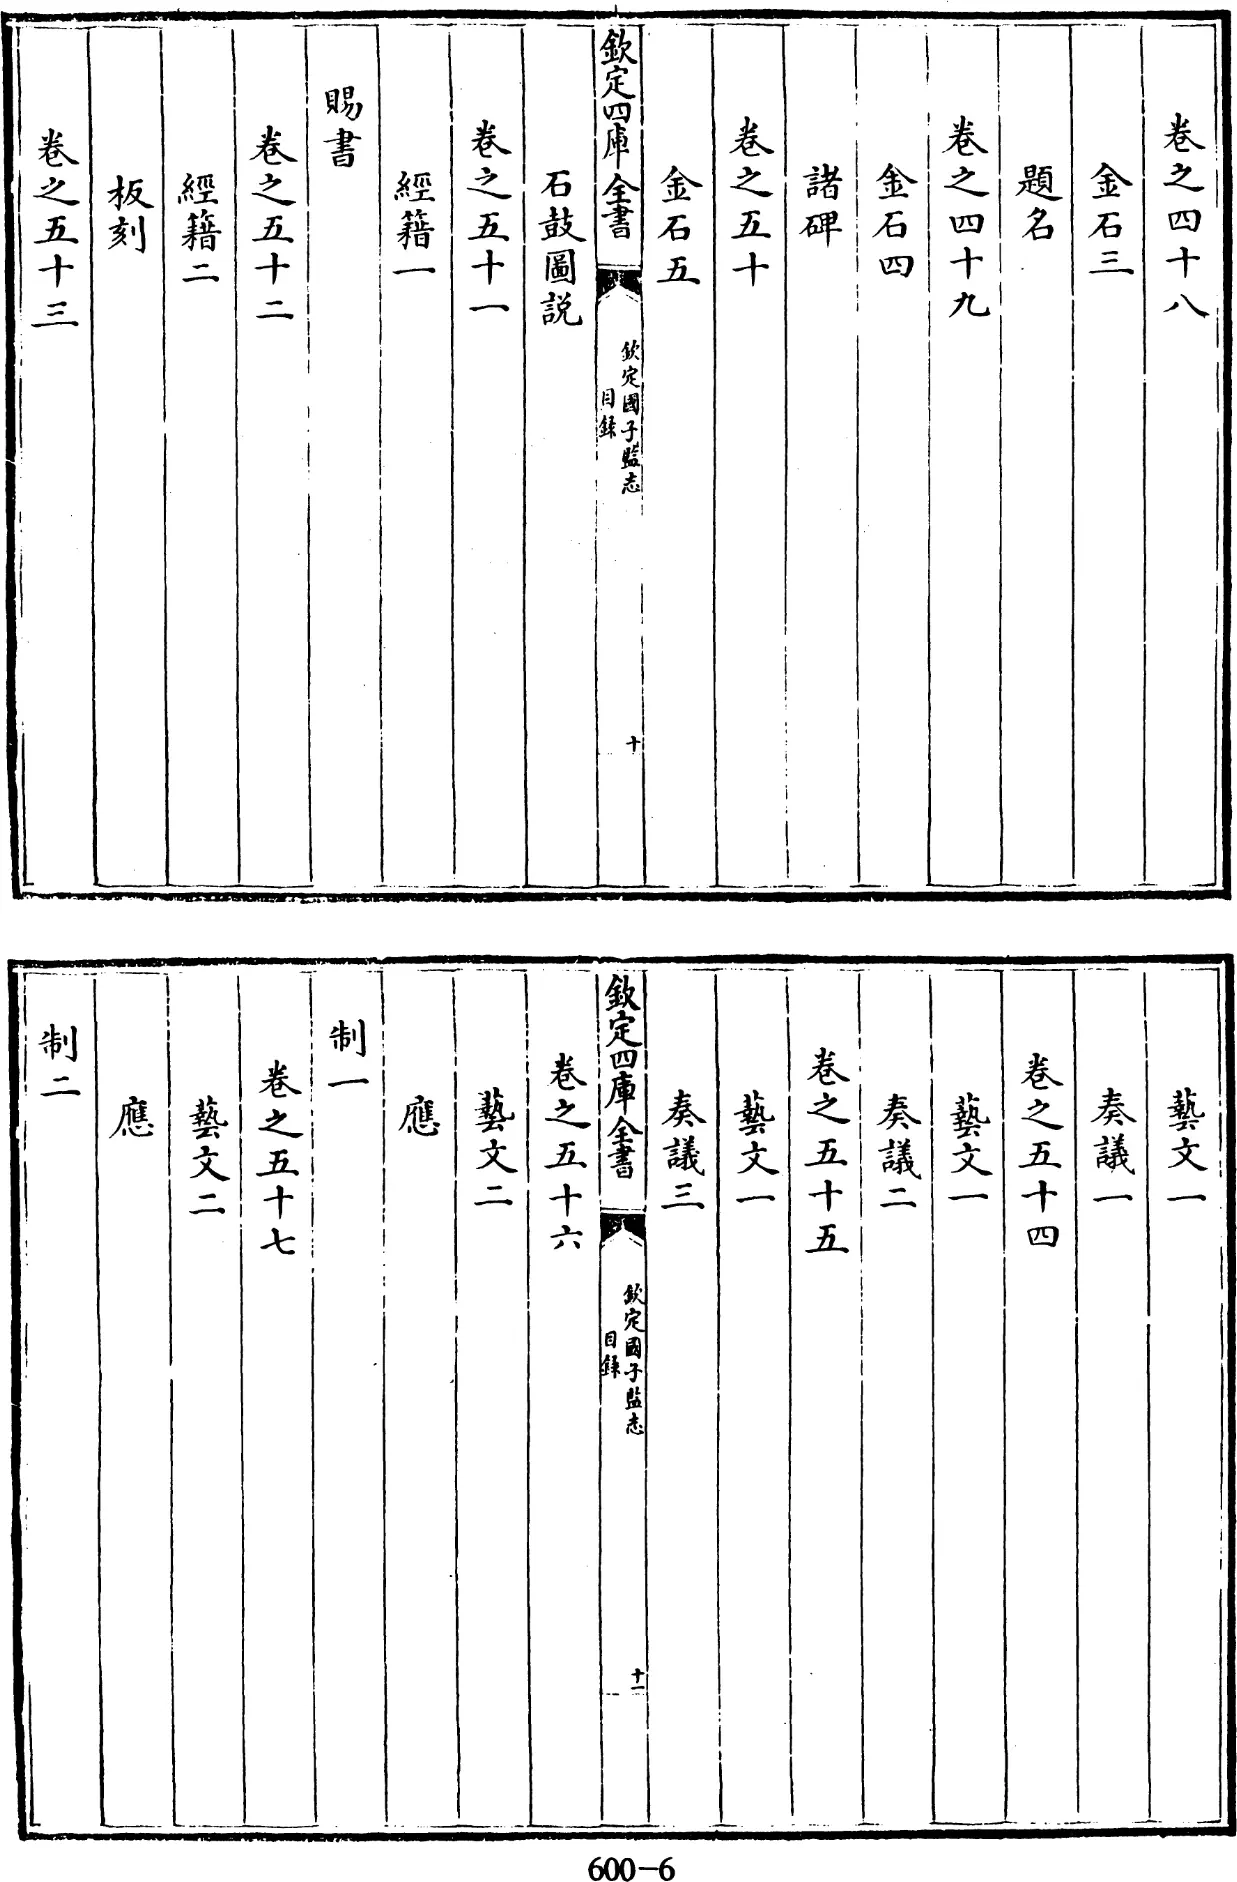 卷之四十八
金石三
題名
卷之四十九
金石四
諸碑
卷之五十
金石五
欽定四庫全書
欽定國子監志
目録
十
石鼓圖説
卷之五十一
經籍一
賜書
卷之五十二
經籍二
板刻
卷之五十三
藝文一
奏議一
卷之五十四
藝文一
奏議二
卷之五十五
藝文一
奏議三
欽定四庫全書
欽定國子監志
目録
十一
卷之五十六
藝文二
應
制一
卷之五十七
藝文二
應
制二
600-6